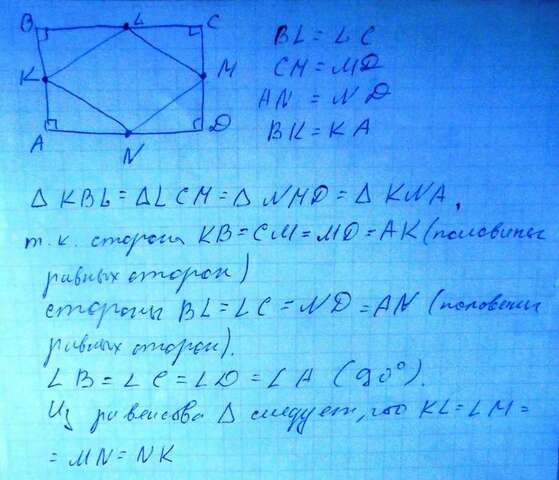 B L C
BL = LC
K M
CM = MD
AN = ND
A N D
BK = KA
Δ KBL = Δ LCM = Δ NMD = Δ KNA,
т.к. стороны KB = CM = MD = AK (половины
равных сторон)
стороны BL = LC = ND = AN (половины
равных сторон).
∠ B = ∠ C = ∠ D = ∠ A (90°).
Из равенства Δ следует, что KL = LM =
= MN = NK